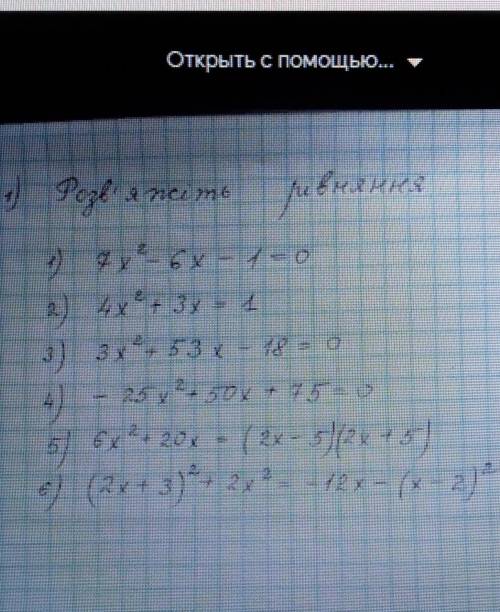 Открыть с помощью...
1) Розв'яжіть рівняння
1) 7x² - 6x - 1 = 0
2) 4x² + 3x = 1
3) 3x² + 53x - 18 = 0
4) - 25x² + 50x + 75 = 0
5) 6x² + 20x = (2x - 5)(2x + 5)
6) (2x + 3)² + 2x² = -12x - (x - 2)²